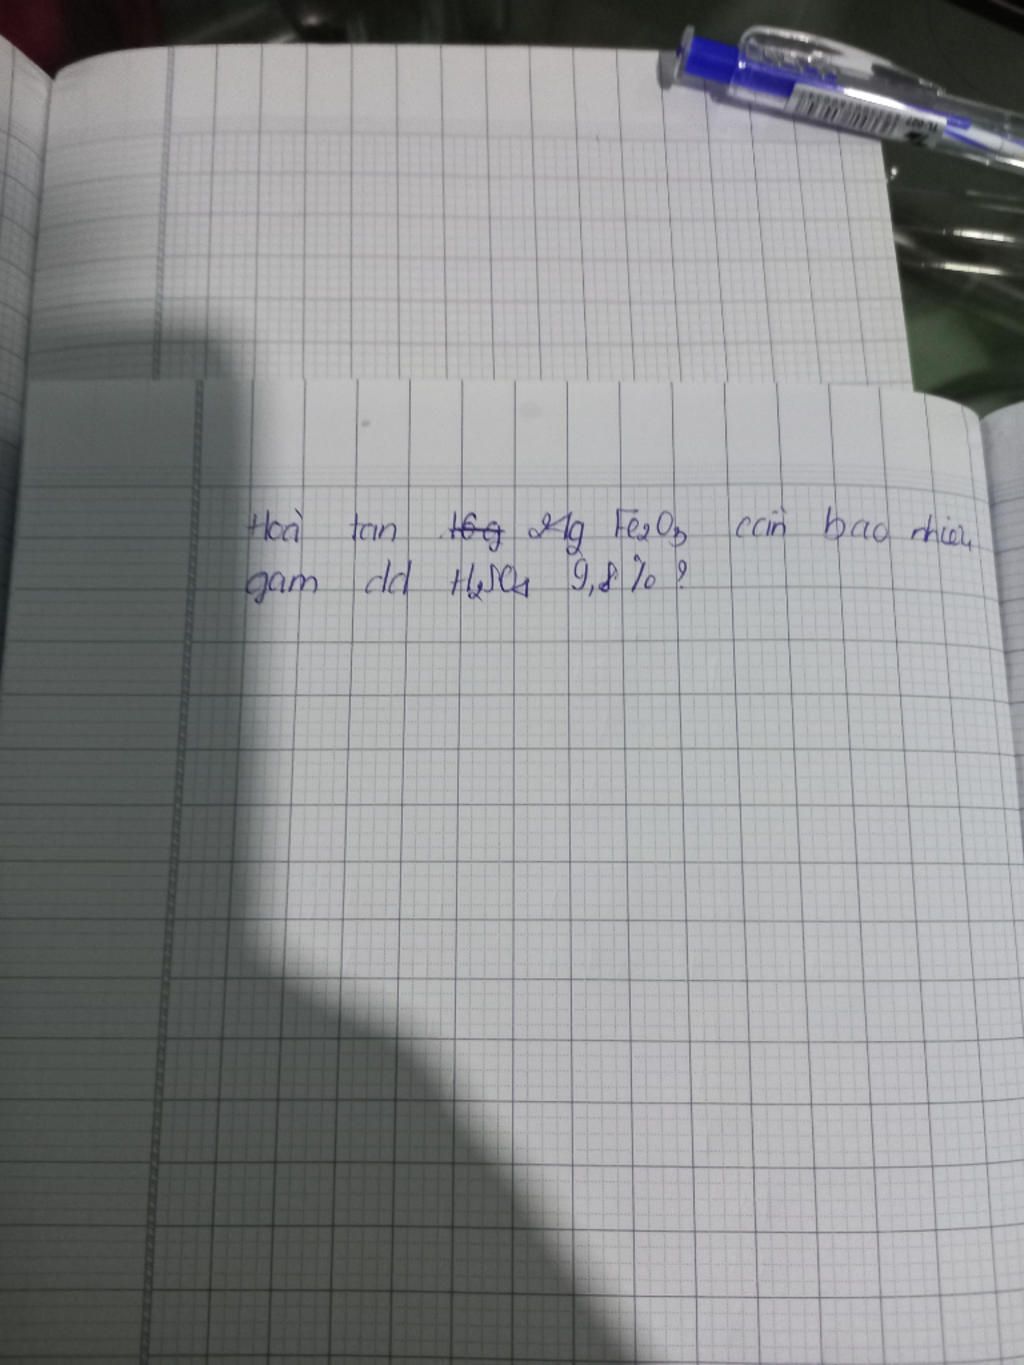 Hoà tan 16g 24g Fe₂O₃ cần bao nhiêu
gam dd H₂SO₄ 9,8% ?